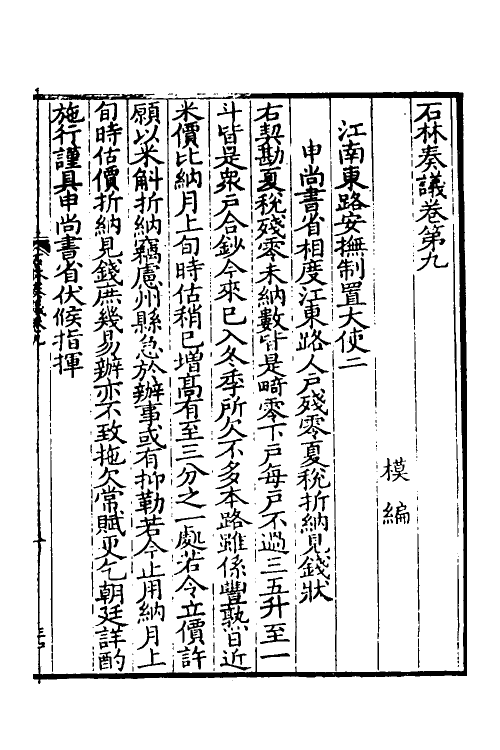 石林奏議卷第九
模編
江南東路安撫制置大使二
申尚書省相度江東路人戶殘零夏稅折納見錢狀
右契勘夏稅殘零未納數皆是畸零下戶每戶不過三五升至一
斗皆是衆戶合鈔今來已入冬季所欠不多本路雖係豐熟日近
米價比納月上旬時估稍已增髙有至三分之一處若令立價許
願以米斛折納竊慮州縣急於辦事或有抑勒若今止用納月上
旬時估價折納見錢庶幾易辦亦不致拖欠常賦更乞朝廷詳酌
施行謹具申尚書省伏候指揮